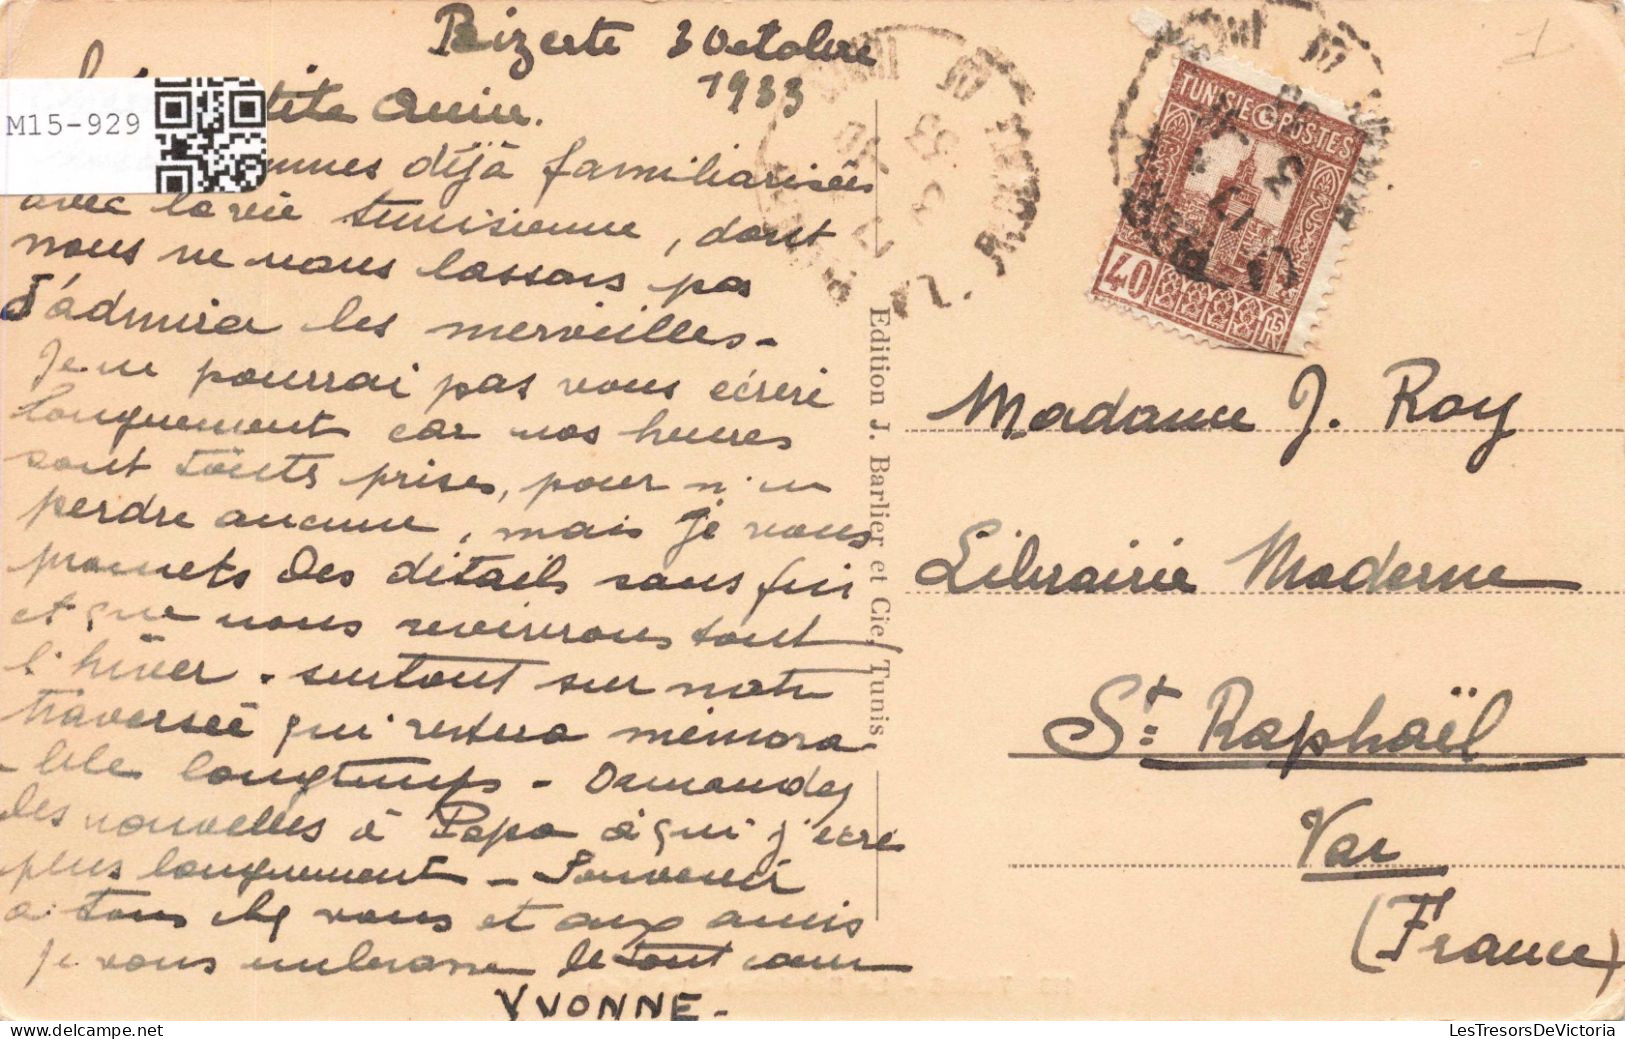 Bizerte 3 Octobre
1933
M15-929
tite Amie.
mmes déjà familiarisées
avec la vie tunisienne, dont
nous ne nous lassons pas
d'admirer les merveilles -
Je ne pourrai pas vous écrire
longuement car nos heures
sont toutes prises, pour n'en
perdre aucune, mais je vous
promets des détails sans fin
et que nous revivrons tout
l'hiver - surtout sur notre
traversée qui restera mémora-
-ble longtemps - Demandez
des nouvelles à Papa à qui j'écris
plus longuement - Souvenir
à tous chez vous et aux amis
Je vous embrasse de tout cœur
YVONNE -
Edition J. Barlier et Cie, Tunis
TUNISIE POSTES
40
Madame J. Roy
Librairie Moderne
St Raphaël
Var
(France)
LesTresorsDeVictoria